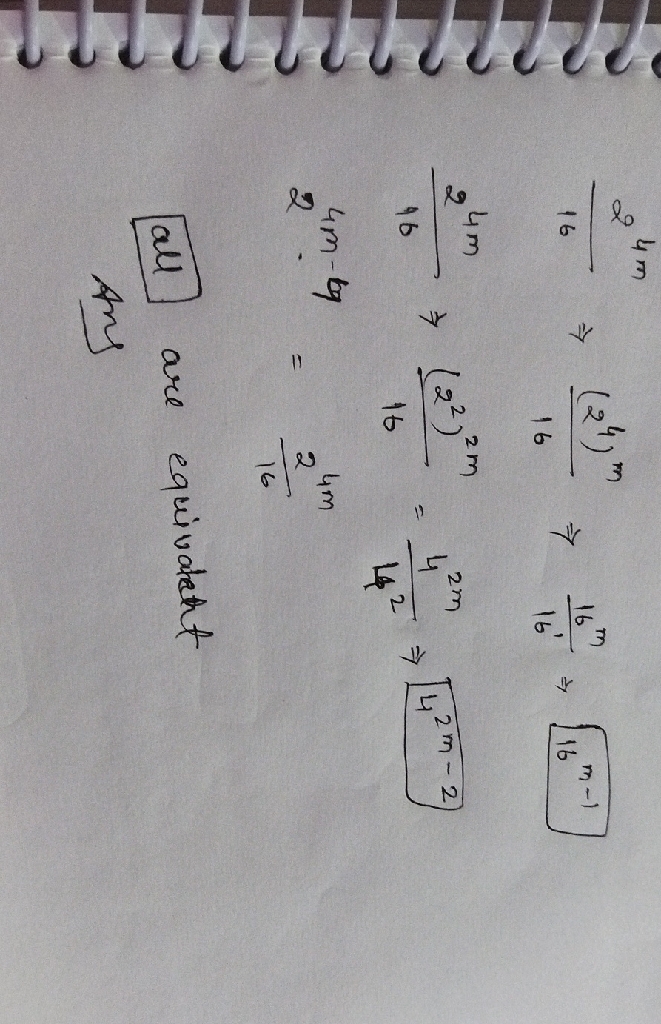 2^4m/16 ⇒ (2^4)^m/16 ⇒ 16^m/16^1 ⇒ 16^m-1
2^4m/16 ⇒ (2^2)^2m/16 = 4^2m/4^2 ⇒ 4^2m-2
2^4m- = 2^4m/16
all are equivalent
Ans